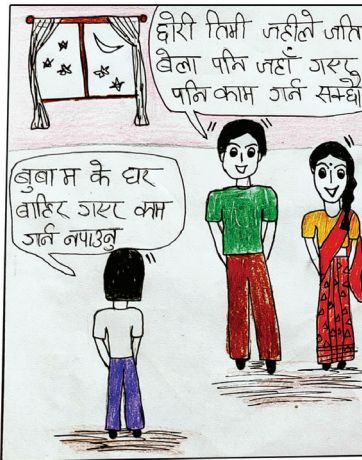 छोरी तिमी जहीले जति
बेला पनि जहाँ गएर
पनि काम गर्न सक्छौ
बुबा म के घर
बाहिर गएर काम
गर्न नपाउनु